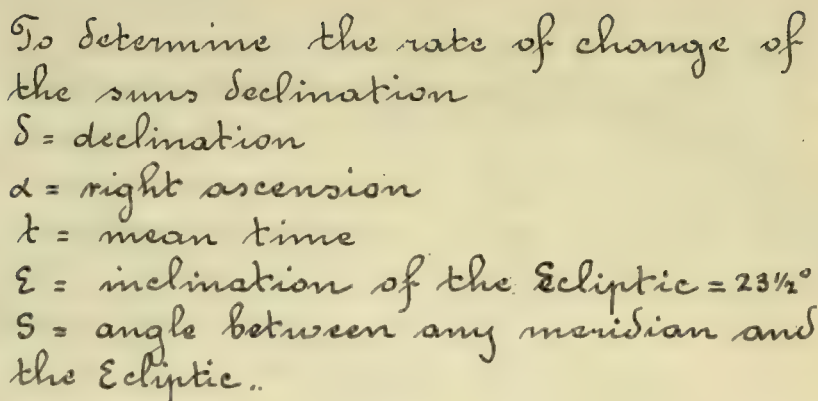 To determine the rate of change of
the suns declination
δ = declination
α = right ascension
t = mean time
ε = inclination of the Ecliptic = 23½°
S = angle between any meridian and
the Ecliptic..